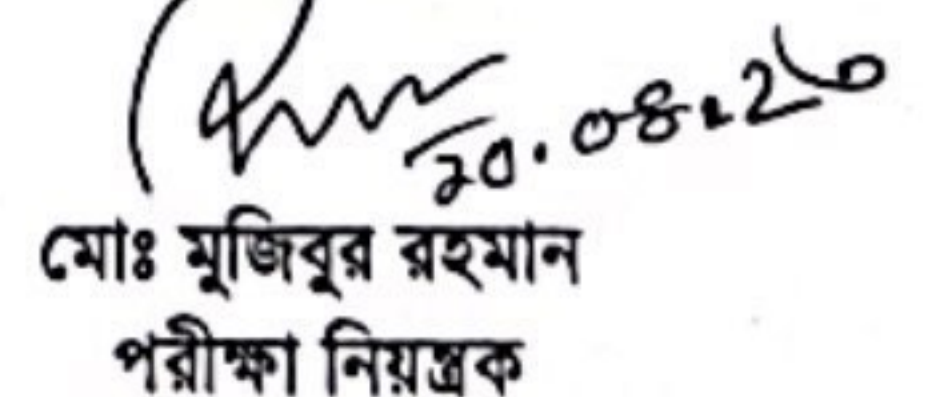 20.08.26
মোঃ মুজিবুর রহমান
পরীক্ষা নিয়ন্ত্রক